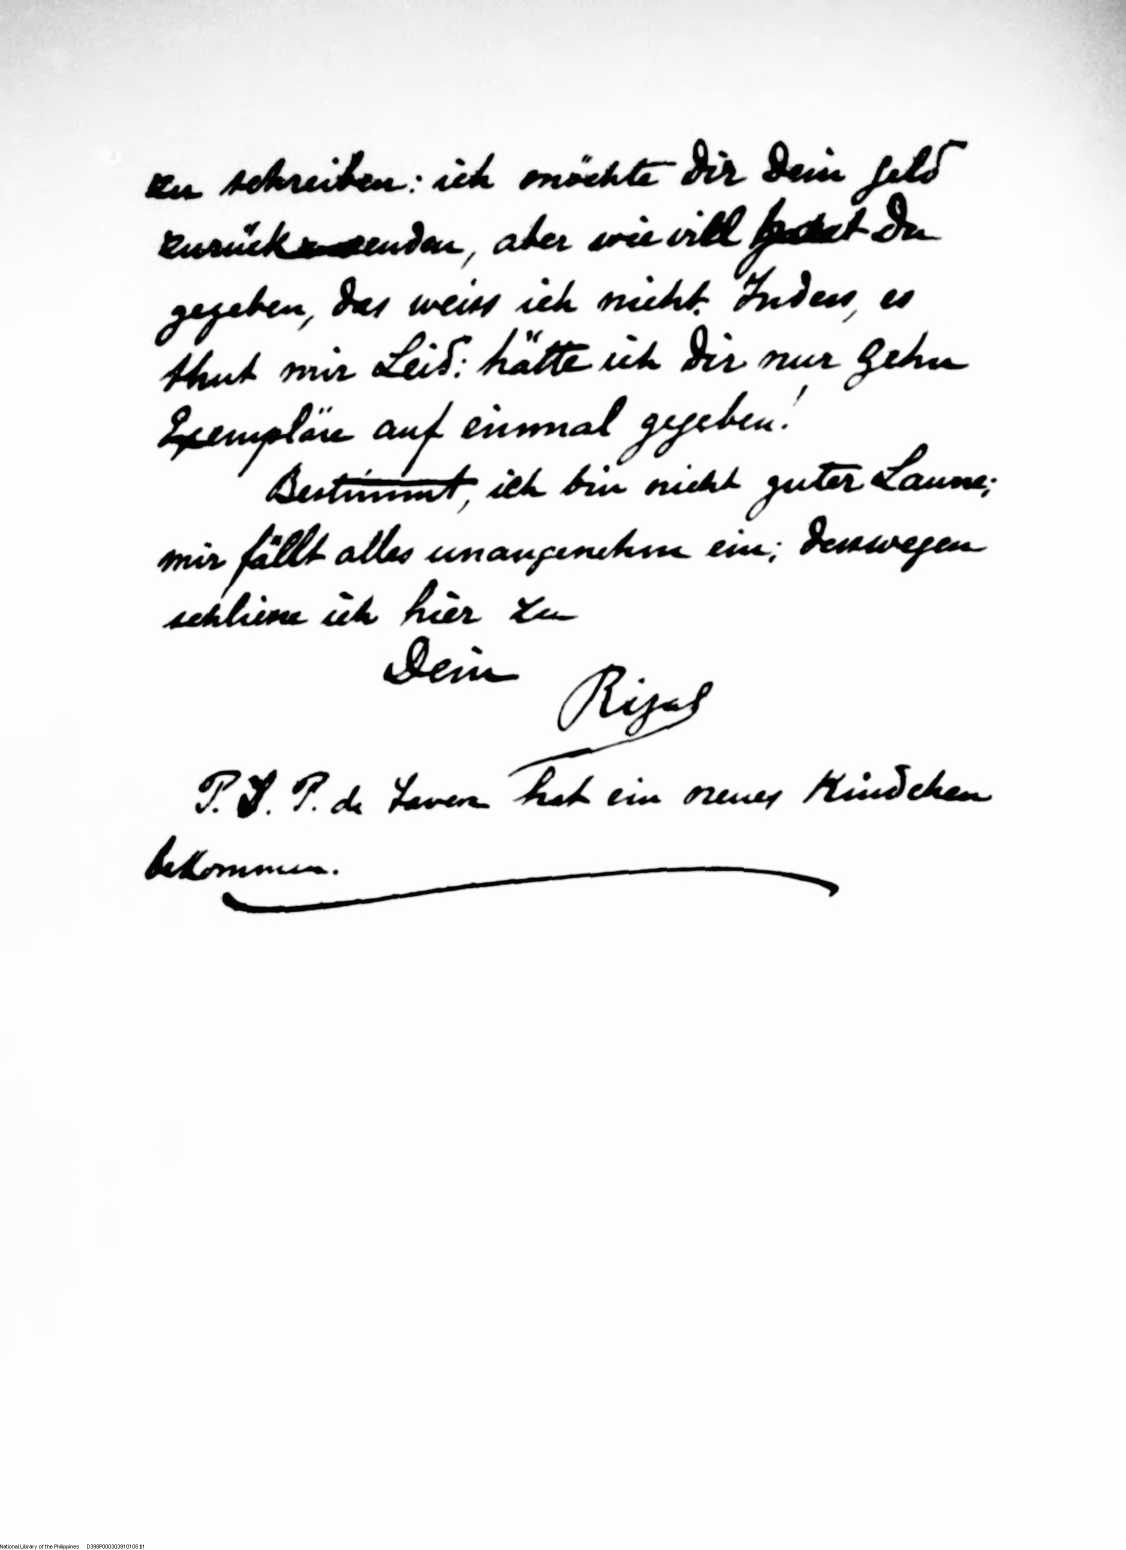 zu schreiben: ich möchte dir Dein geld
zurücksenden, aber wie vill hast Du
gegeben, das weiss ich nicht. Indess, es
thut mir Leid: hätte ich dir nur Zehn
Exempläre auf einmal gegeben!
Bestimmt, ich bin nicht guter Laune;
mir fällt alles unangenehm ein; desswegen
schliesse ich hier zu
Dein
Rizal
P. S. P. de Tavera hat ein neues Kindchen
bekommen.
National Library of the Philippines